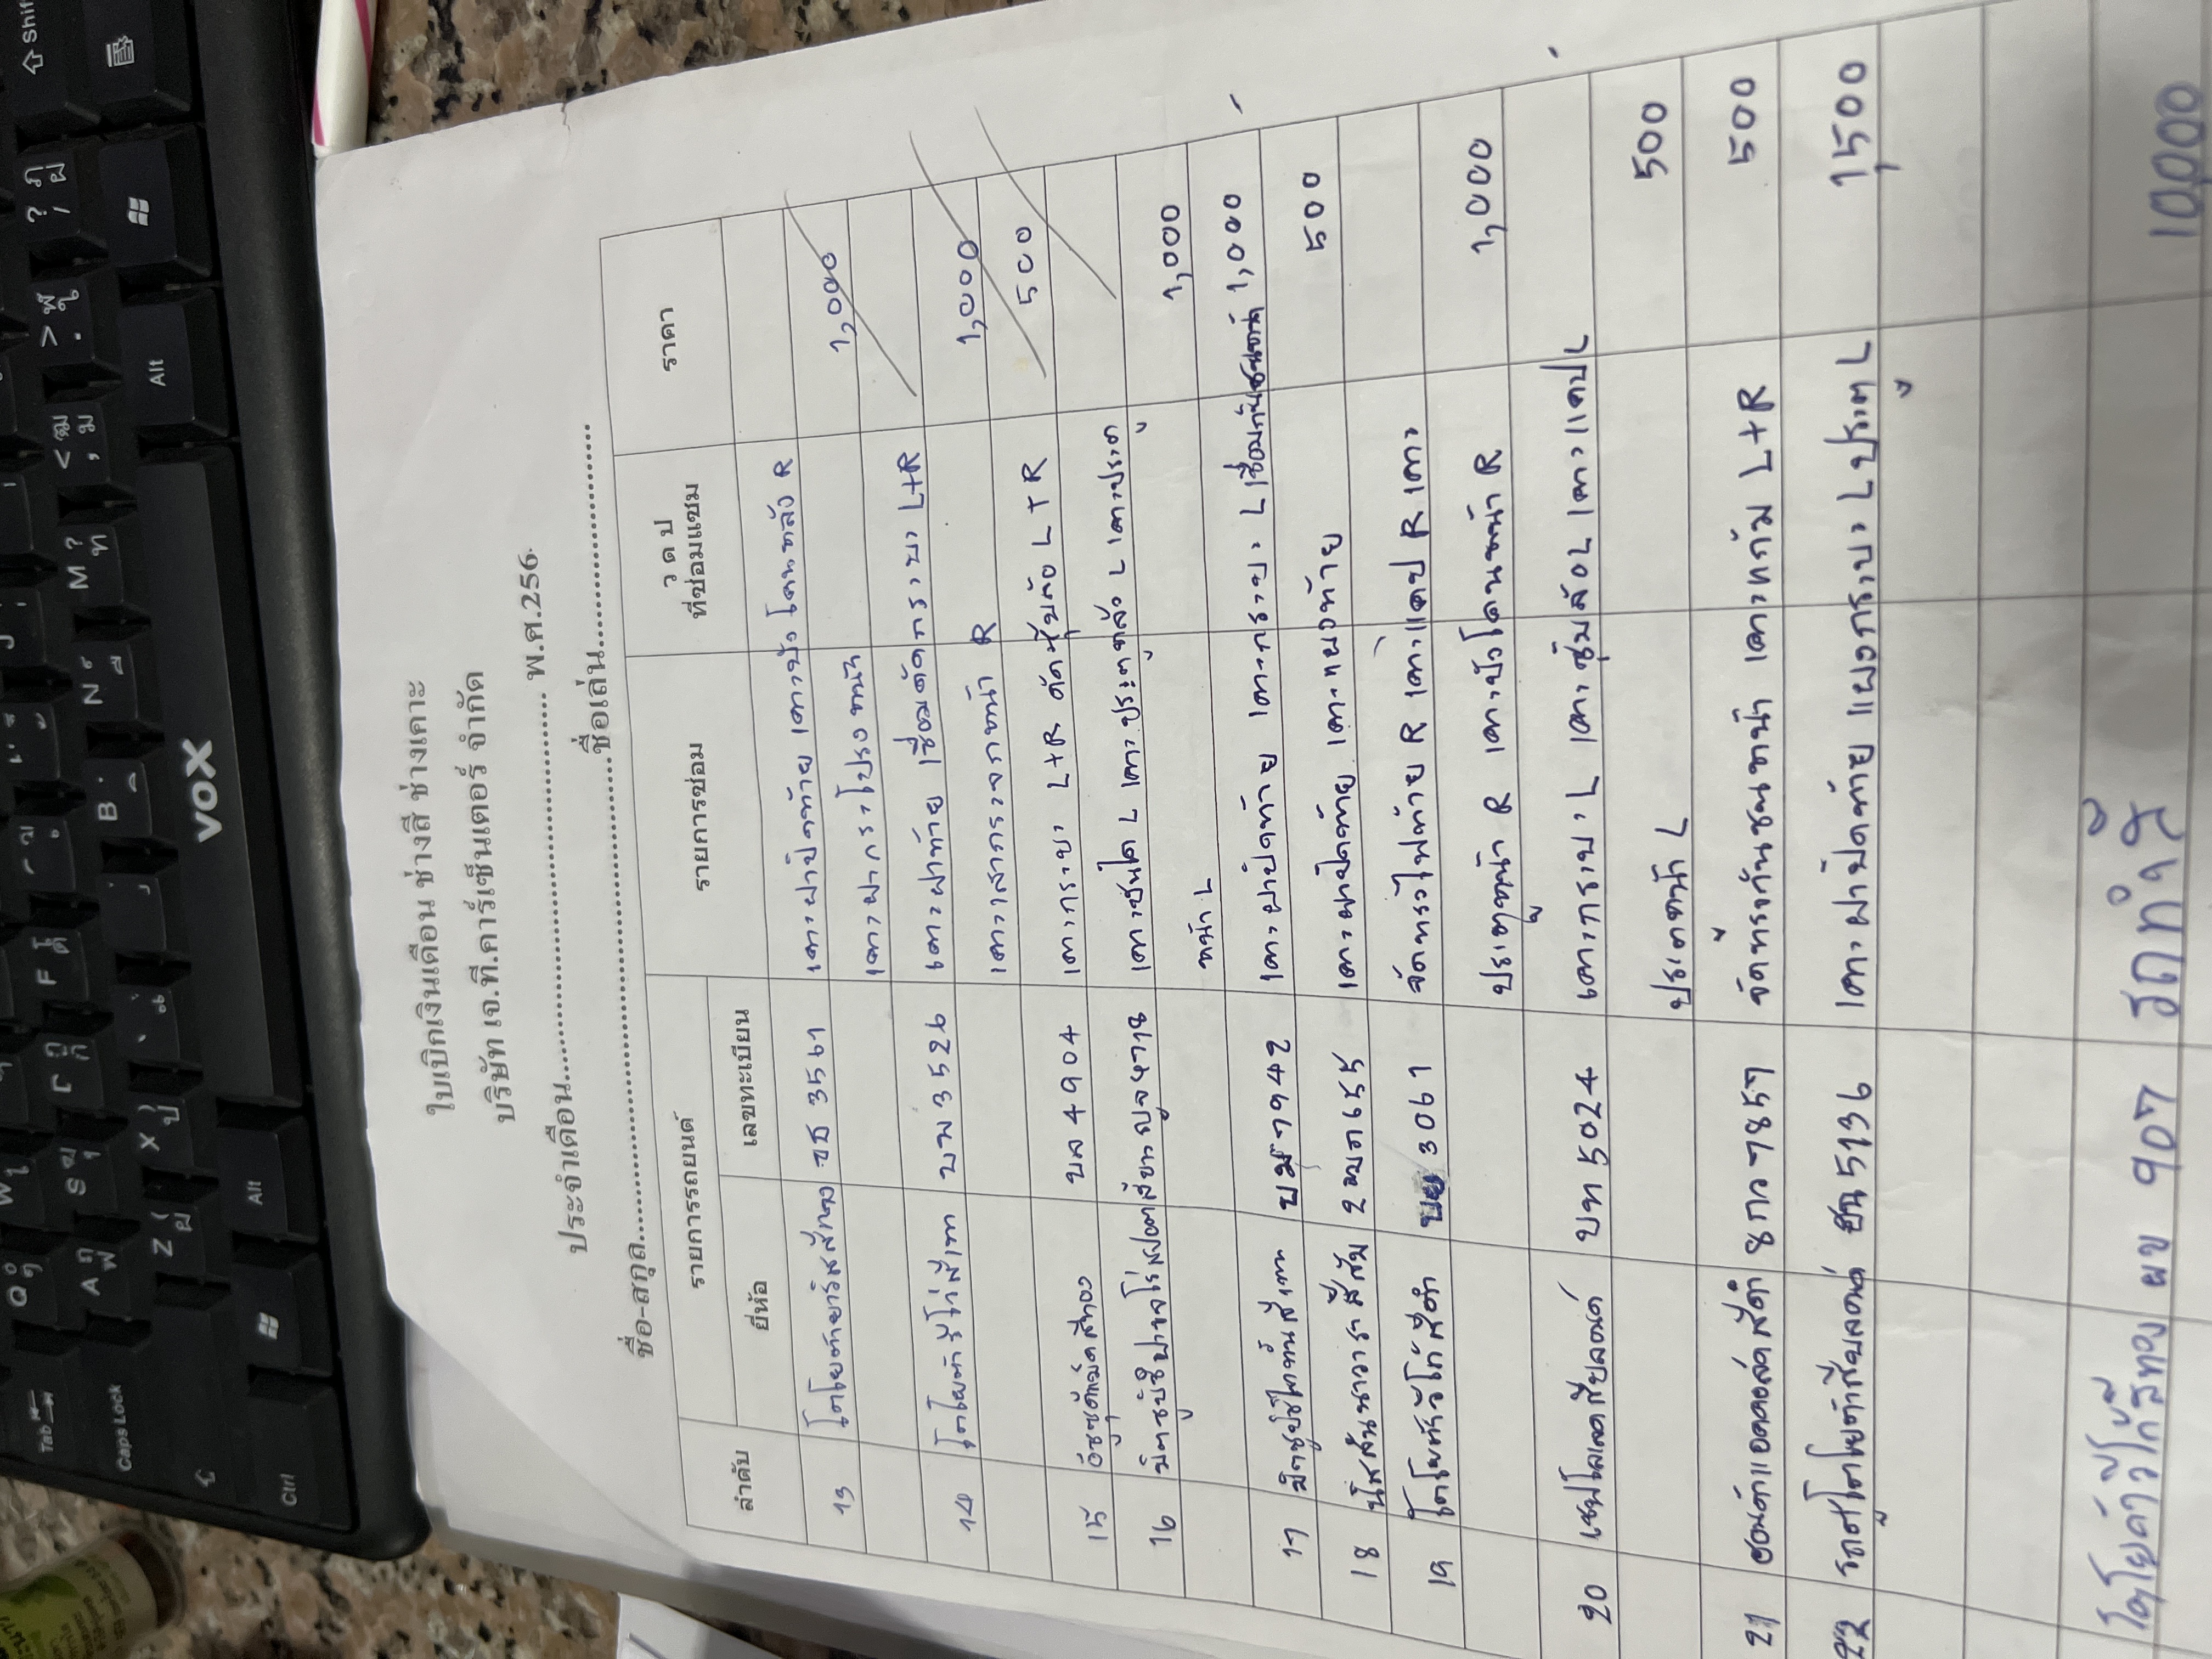 ใบเบิกเงินเดือน ช่างสี ช่างเคาะ
บริษัท เจ.ที.คาร์เซ็นเตอร์ จำกัด
ประจำเดือน.................... พ.ศ.256
ชื่อ-สกุล....................ชื่อเล่น....................
ลำดับ รายการรถยนต์ รายการซ่อม ว ด ป ที่ซ่อมแซม ราคา
ยี่ห้อ เลขทะเบียน
13 โตโยต้ายารีสสีทอง 3567 เคาะฝาปิดท้าย เคาะบังโคนหลัง R
เคาะฝากระโปรงหน้า 1,000
14 โตโยต้าวีโก้สีเทา บพ 3526 เคาะฝาท้าย เชื่อมตัดกระบะ L+R
เคาะเสากระจกหน้า R 1,000
15 อีซูซุดีแม็คสีทอง บล 4904 เคาะกระบะ L+R ตัดหุ้มล้อ L+R 500
16 มิตซูบิชิปาเจโร่สปอต เคาะบันได L เคาะประตูหลัง L เคาะประตู
หน้า L 1,000
17 มิตซูบิชิไททันสีเทา 7942 เคาะฝาปิดท้าย เคาะกระบะ L เชื่อมกันชนหน้า 1,000
18 นิสสันนาวาร่าสีส้ม เคาะฝาปิดท้าย เคาะแผงท้าย 500
19 โตโยต้าวีโก้สีดำ 3061 จัดทรงไฟท้าย R เคาะแคป R เคาะ
ประตูหน้า R เคาะบังโคนหน้า R 1,000
20 เชฟโลเลตสีบลอนด์ บท 5024 เคาะกระบะ L เคาะซุ้มล้อ L เคาะแคป L
ประตูหน้า L 500
21 ฮอนด้าแอคคอสสีดำ 8กว 7857 จัดทรงกันชนหน้า เคาะแก้ม L+R 500
22 รถตู้โตโยต้าสีบลอนด์ ฮน 5136 เคาะฝาปิดท้าย แผงกระบะ L ประตู L 1,500
โตโยต้าวีโก้สีทอง ผข 907 รถกำนัน 10,000
VOX
Tab
Caps Lock
Ctrl
Alt
Alt
Shift